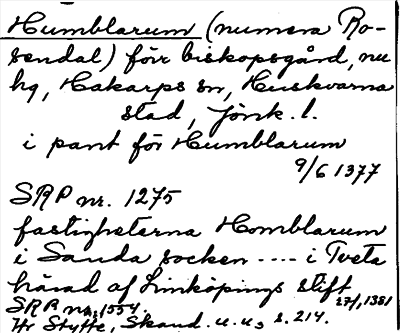 Humblarum (numera Ro-
sendal) förr biskopsgård, nu
hg, Hakarps sn, Huskvarna
stad, Jönk. l.
i pant för Humblarum
9/6 1377
SRP nr. 1275
fastigheterna Homblarum
i Sanda socken ---- i Tveta
härad af Linköpings stift
27/1,1381
SRP nr, 1554.
Hr Styffe, Skand. u. u., s. 214.